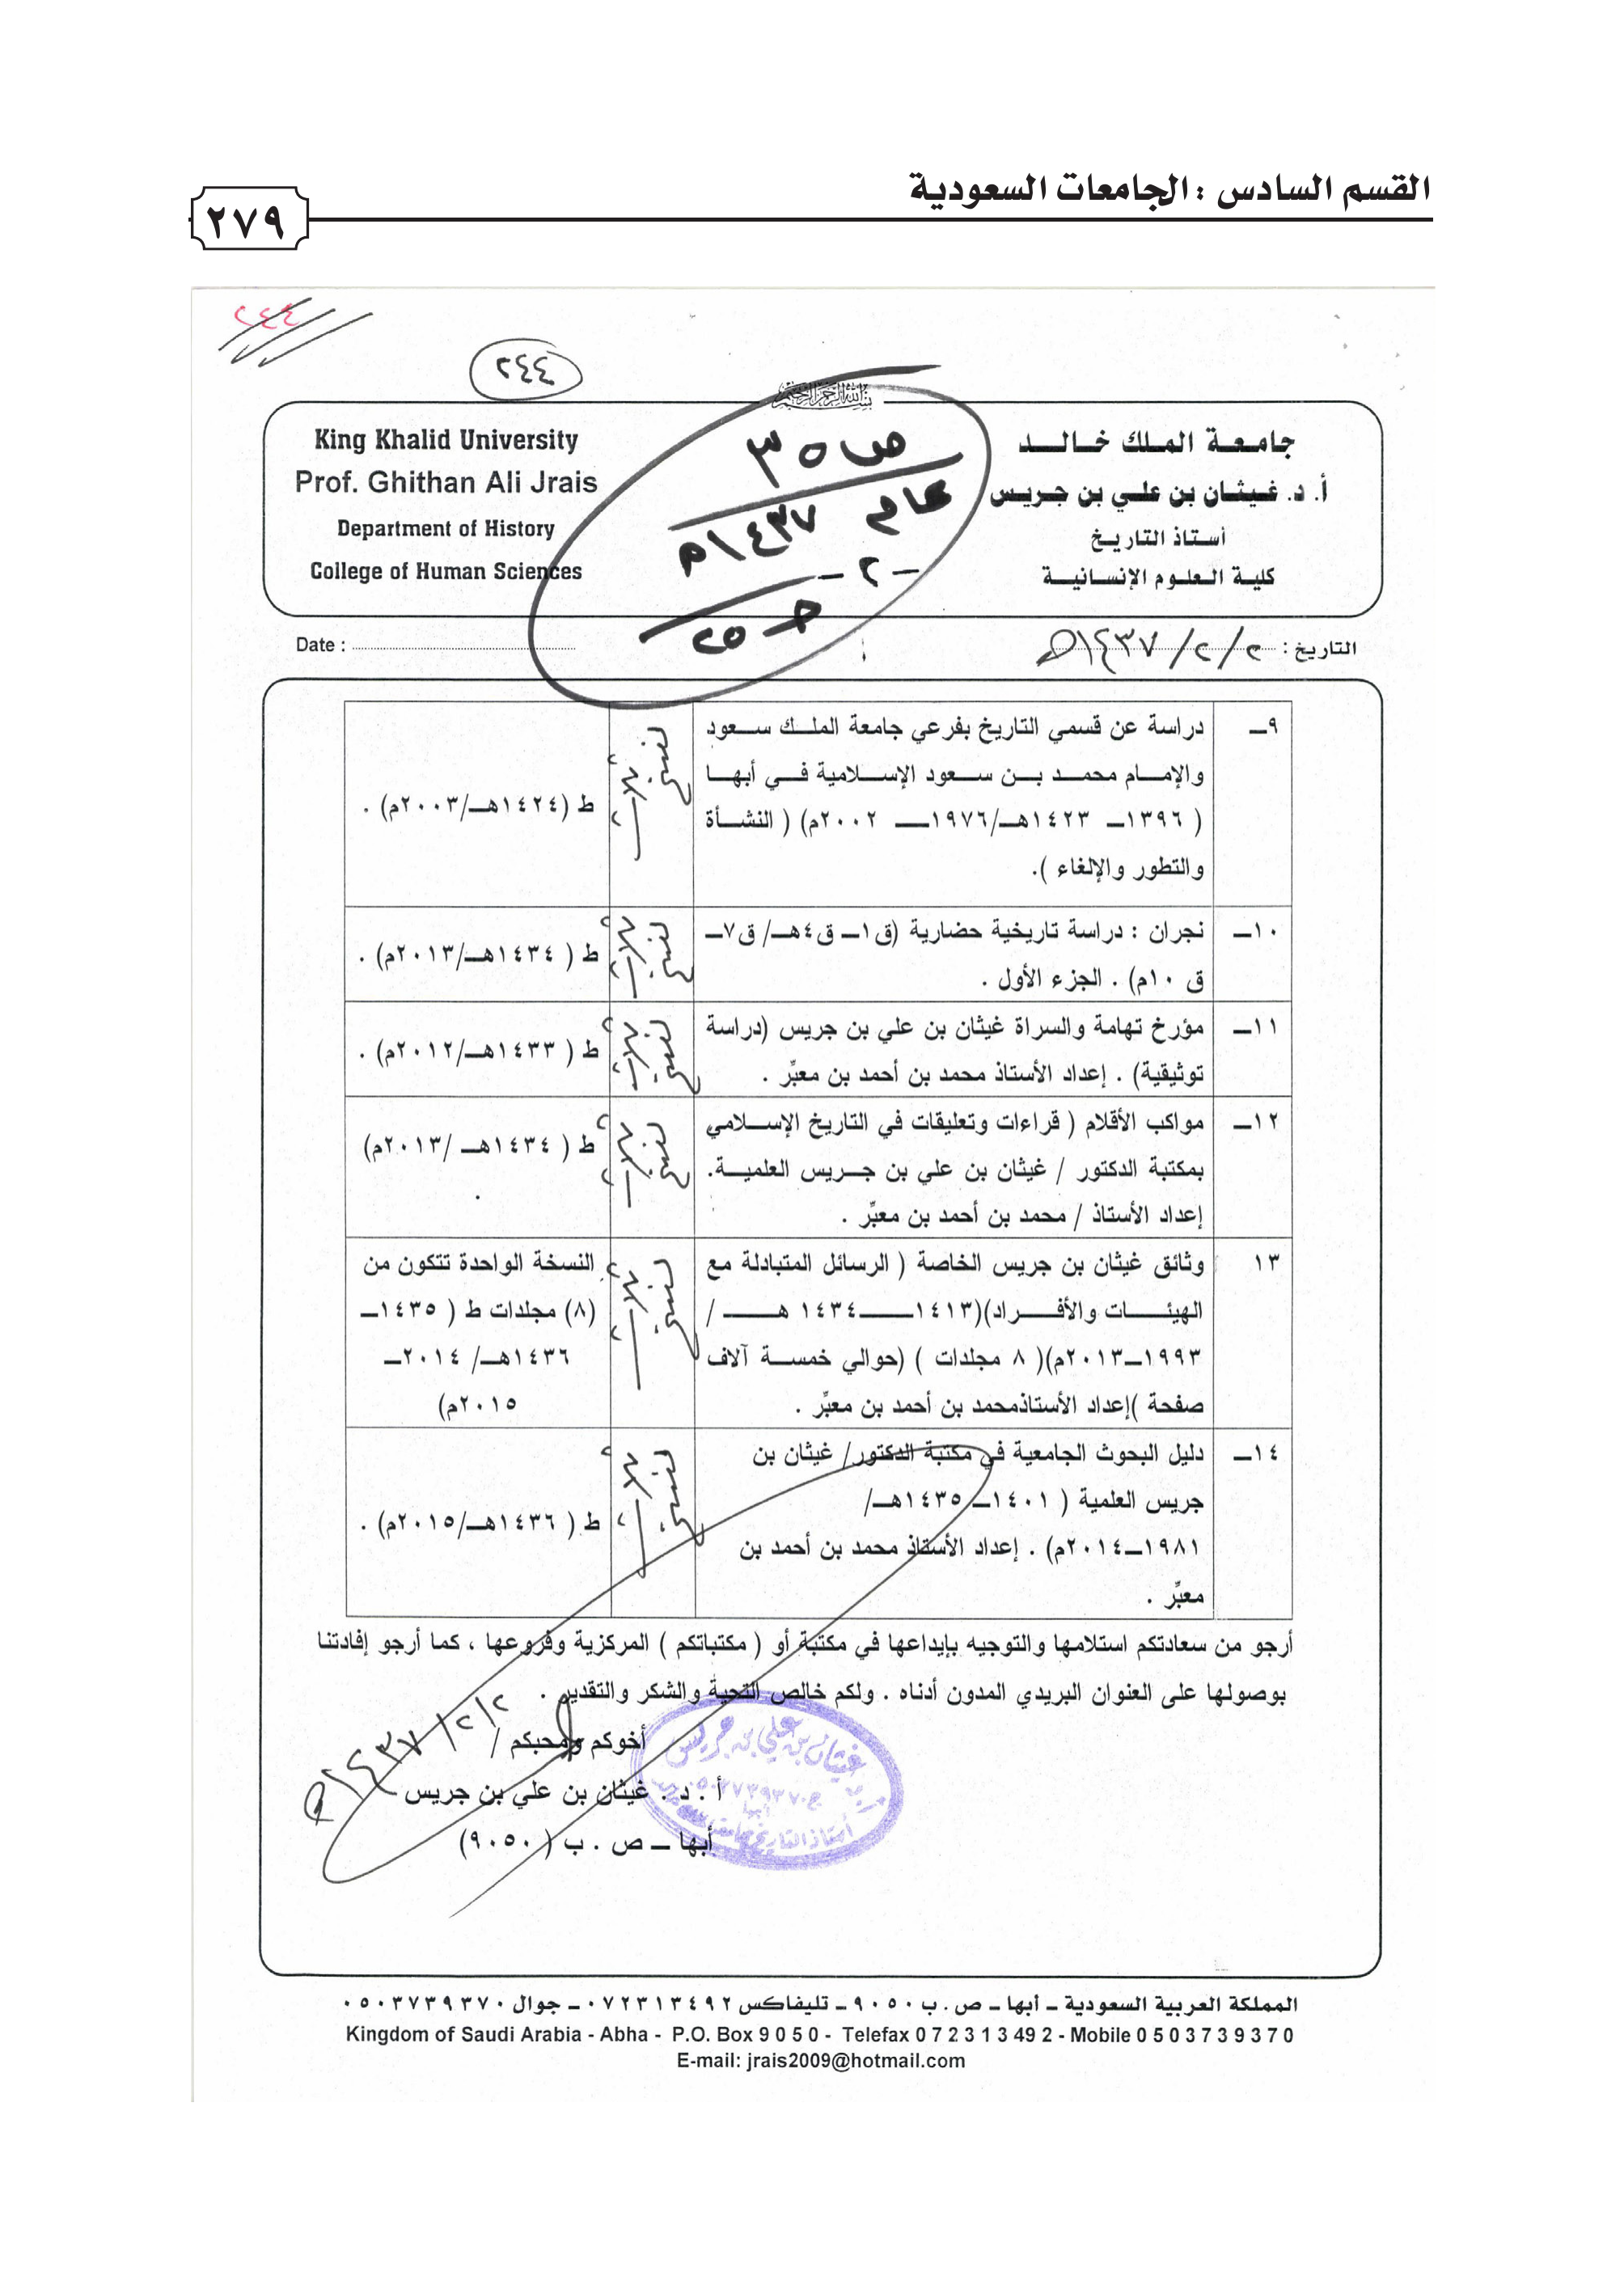 القسم السادس : الجامعات السعودية
٢٧٩
٢٤٤
٢٤٤
بسم الله الرحمن الرحيم
جامعة الملك خالد
أ. د. غيثان بن علي بن جريس
أستاذ التاريخ
كلية العلوم الإنسانية
King Khalid University
Prof. Ghithan Ali Jrais
Department of History
College of Human Sciences
ص ٣٥
عام ١٤٣٧هـ
- ٢ -
حـ ٢٥
التاريخ : ٢ / ٢ / ١٤٣٧هـ
Date :
٩ــ
دراسة عن قسمي التاريخ بفرعي جامعة الملك سعود
والإمام محمد بن سعود الإسلامية في أبها
( ١٣٩٦ــ ١٤٢٣هـ/١٩٧٦ــ ٢٠٠٢م) ( النشأة
والتطور والإلغاء ).
ط (١٤٢٤هـ/٢٠٠٣م) .
١٠ــ
نجران : دراسة تاريخية حضارية (ق١ــ ق٤هـ/ ق٧ــ
ق ١٠م) . الجزء الأول .
ط ( ١٤٣٤هـ/٢٠١٣م) .
١١ــ
مؤرخ تهامة والسراة غيثان بن علي بن جريس (دراسة
توثيقية) . إعداد الأستاذ محمد بن أحمد بن معبِّر .
ط ( ١٤٣٣هـ/٢٠١٢م) .
١٢ــ
مواكب الأقلام ( قراءات وتعليقات في التاريخ الإسلامي
بمكتبة الدكتور / غيثان بن علي بن جريس العلمية.
إعداد الأستاذ / محمد بن أحمد بن معبِّر .
ط ( ١٤٣٤هـ /٢٠١٣م)
.
١٣
وثائق غيثان بن جريس الخاصة ( الرسائل المتبادلة مع
الهيئات والأفراد)(١٤١٣ــ١٤٣٤ هـ /
١٩٩٣ــ٢٠١٣م)( ٨ مجلدات ) (حوالي خمسة آلاف
صفحة )إعداد الأستاذمحمد بن أحمد بن معبِّر .
النسخة الواحدة تتكون من
(٨) مجلدات ط ( ١٤٣٥ــ
١٤٣٦هـ/ ٢٠١٤ــ
٢٠١٥م)
١٤ــ
دليل البحوث الجامعية في مكتبة الدكتور/ غيثان بن
جريس العلمية ( ١٤٠١ــ ١٤٣٥هـ/
١٩٨١ــ٢٠١٤م) . إعداد الأستاذ محمد بن أحمد بن
معبِّر .
ط ( ١٤٣٦هـ/٢٠١٥م) .
أرجو من سعادتكم استلامها والتوجيه بإيداعها في مكتبة أو ( مكتباتكم ) المركزية وفروعها ، كما أرجو إفادتنا
بوصولها على العنوان البريدي المدون أدناه . ولكم خالص التحية والشكر والتقدير .
أخوكم ومحبكم /
أ . د . غيثان بن علي بن جريس
أبها ــ ص . ب ( ٩٠٥٠)
٢/٢/١٤٣٧هـ
غيثان بن علي بن جريس
أستاذ التاريخ
المملكة العربية السعودية ـ أبها ـ ص. ب ٩٠٥٠ ـ تليفاكس ٠٧٢٣١٣٤٩٢ ـ جوال ٠٥٠٣٧٣٩٣٧٠
Kingdom of Saudi Arabia - Abha - P.O. Box 9 0 5 0 - Telefax 0 7 2 3 1 3 49 2 - Mobile 0 5 0 3 7 3 9 3 7 0
E-mail: jrais2009@hotmail.com